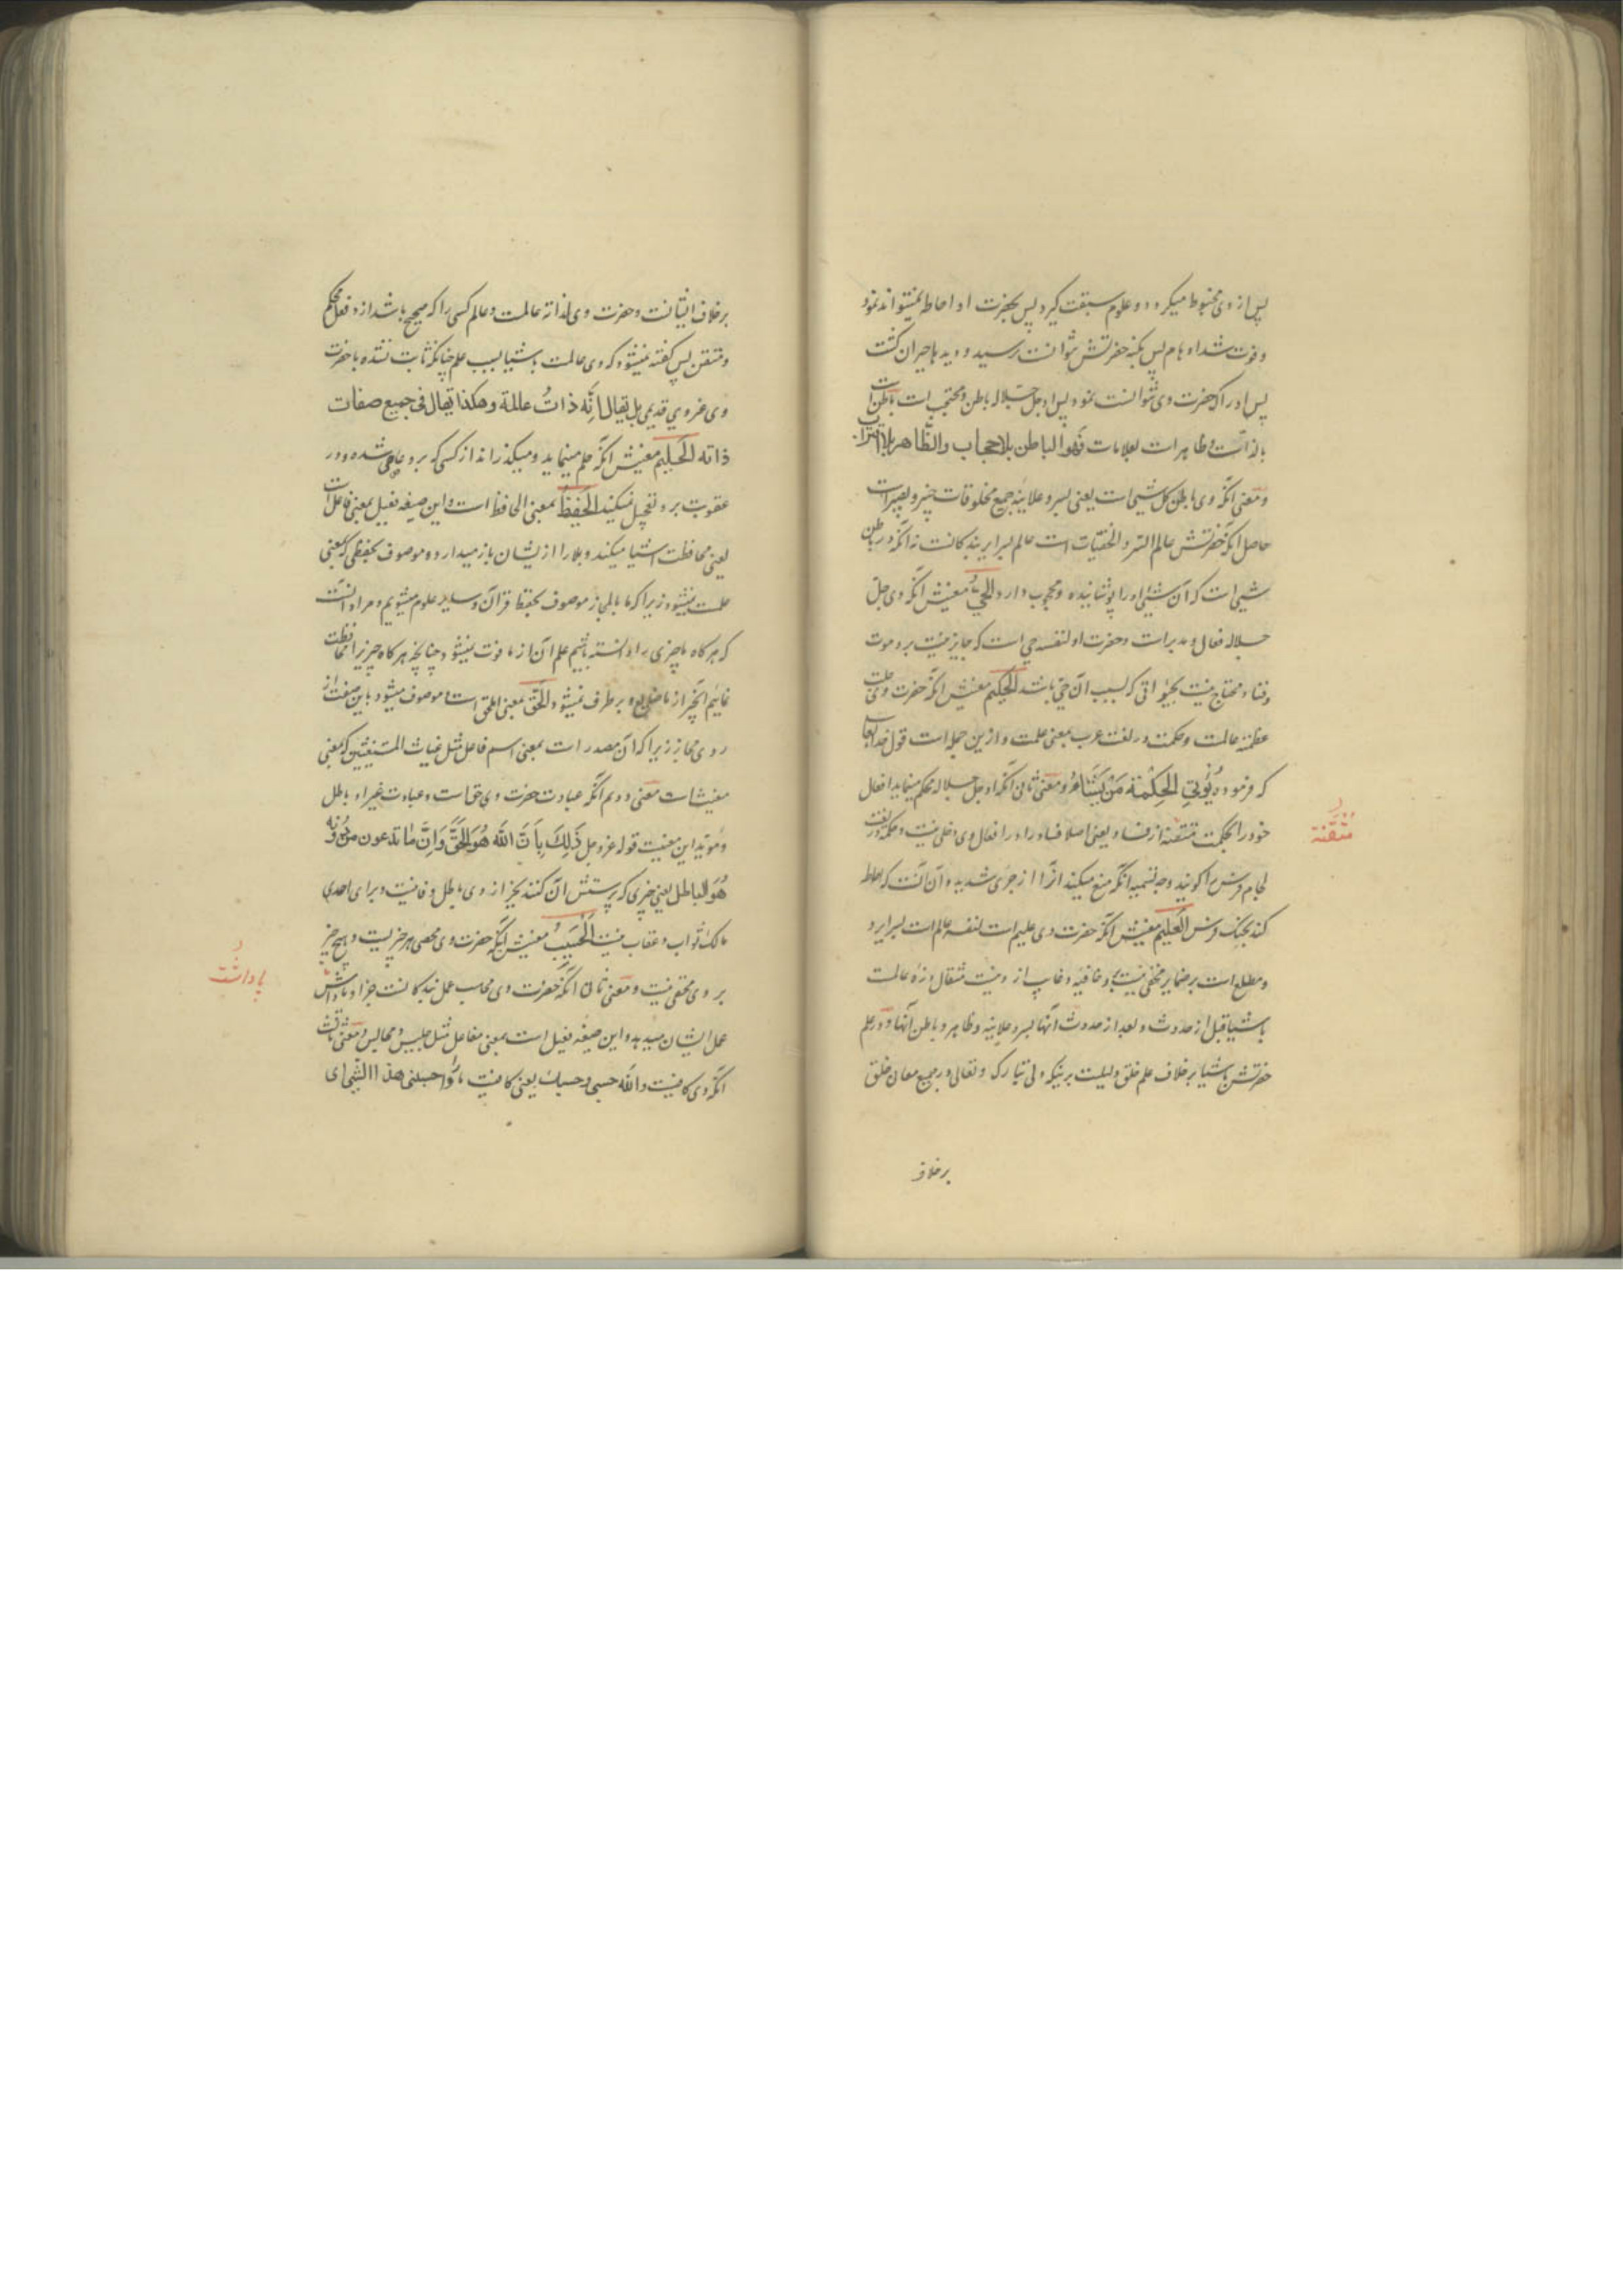 پس از وی مخبوط میکردد و علوم سبقت کیرد پس بحضرت او احاطه نمیتواند نمود
و فوت شد اوهام پس بکنه حضرتش نتوانست رسید و دیدها حیران کشت
پس ادراک حضرت وی نتوانست نمود پس او جل جلاله باطن و محتجب است باطن است
بالذات و ظاهر است بعلامات فهو الباطن بلا حجاب والظاهر بلا اقتراب
و معنی آنکه وی باطن کل شیئی است یعنی بسر و علانیه جمیع مخلوقات خبیر و بصیر است
حاصل آنکه حضرتش عالم السر و الخفیات است عالم بسرایر بندکانست نه آنکه در باطن
شیئی است که آن شیئی او را پوشانیده و محجوب دارد الحی معنیش آنکه وی جل
جلاله فعال و مدبر است و حضرت او لنفسه حی است که جایز نیست برو موت
و فنا و محتاج نیست بحیواتی که بسبب آن حی باشد الحکیم معنیش آنکه حضرت وی جلت
عظمته عالمست و حکمت در لغت عرب بمعنی علمست و ازین جمله است قول خدایتعالی
که فرموده یُؤتِی الحِکْمَةَ مَنْ یَشَاءُ و معنی ثانی آنکه او جل جلاله محکم مینماید افعال
خود را بحکمت متقنه از فساد یعنی اصلا فساد را در افعال وی دخلی نیست و حکمه در لغت
لجام فرس را کویند وجه تسمیه آنکه منع میکند آنرا از جری شدید و آن آنست که احاطه
کند بحنک فرس العلیم معنیش آنکه حضرت وی علیم است لنفسه عالم است بسرایر و
و مطلع است بر ضمایر مخفی نیست برو خافیه و غایب از و نیست مثقال ذره عالمست
باشیا قبل از حدوث و بعد از حدوث آنها بسر و علانیه و ظاهر و باطن آنها و در علم
حضرتش باشیا بر خلاف علم خلق دلیلست برینکه ولی تبارک و تعالی در جمیع معان خلق
بر خلاف
متقنة
بر خلاف ایشانست و حضرت وی لذاته عالمست و عالم کسی را که صحیح باشد ازو فعل محکم
و متقن پس کفته نمیشود که وی عالمست باشیا بسبب علم چنانکه ثابت نشده با حضرت
وی غیر وی قدیمی بل یقال انّه ذاتٌ عالمة وهکذا یقال فی جمیع صفات
ذاته الحلیم معنیش آنکه حلم مینماید و میکذراند از کسی که برو عاصی شده و در
عقوبت برو تعجیل نمیکند الحفیظ بمعنی الحافظ است و این صیغه فعیل بمعنی فاعل است
یعنی محافظت اشیا میکند و بلا را از یشان باز میدارد و موصوف بحفظی که بمعنی
علمست نمیشود زیرا که ما بالمجاز موصوف بحفظ قرآن و سایر علوم میشویم و مراد آنست
که هر کاه ما چیزی را دانسته باشیم علم آن از ما فوت نمیشود چنانچه هر کاه چیزیرا محافظت
نمائیم آنچیز از ما ضایع و برطرف نمیشود الحق بمعنی المحق است و موصوف میشود باین صفت از
روی مجاز زیرا که آن مصدر است بمعنی اسم فاعل مثل غیاث المستغیثین که بمعنی
مغیث است معنی دویم آنکه عبادت حضرت وی حق است و عبادت غیر او باطل
و مؤید این معنیست قوله عز و جل ذَلِكَ بِأَنَّ اللهَ هُوَ الحَقُّ وَأَنَّ مَا تدعون من دُونِهِ
هُوَ الباطل یعنی چیزی که پرستش آن کنند بجز از وی باطل و فانیست و برای احدی
مالک ثواب و عقاب نیست الحَسِیبُ معنیش آنکه حضرت وی محصی هر چیزیست و هیچ چیز
بر وی مخفی نیست و معنی ثانی آنکه حضرت وی محاسب عمل بندکانست جزا و پاداش
عمل ایشان میدهد و این صیغه فعیل است بمعنی مفاعل مثل جلیس و مجالس و معنی ثالث
آنکه وی کافیست والله حسبی و حسبك یعنی کافیست ما را و احسبنی هذا الشیئ ای
پاداشت